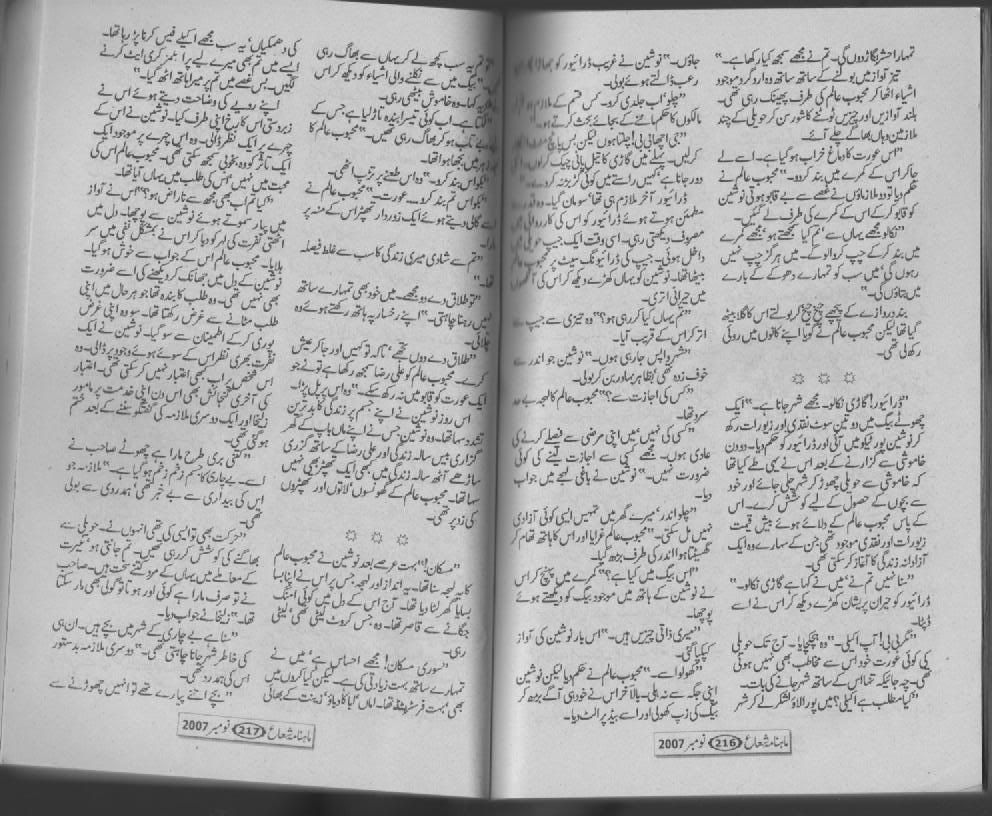 تمہارا حشر گاڑ دوں گی۔ تم نے مجھے سمجھ کیا رکھا ہے۔"
تیز آواز میں بولنے کے ساتھ ساتھ وہ ارد گرد موجود
اشیاء اٹھا کر محبوب عالم کی طرف پھینک رہی تھی۔
بلند آوازیں اور چیزیں ٹوٹنے کا شور سن کر حویلی کے چند
ملازمین وہاں بھاگے چلے آئے۔
"اس عورت کا دماغ خراب ہو گیا ہے۔ اسے لے
جا کر اس کے کمرے میں بند کر دو۔" محبوب عالم نے
حکم دیا تو وہ ملازماؤں نے غصے سے بے قابو ہوتی نوشین
کو قابو کر کے اس کے کمرے کی طرف لے گئیں۔
"نکالو مجھے یہاں سے، تم کیا سمجھتے ہو مجھے کمرے
میں بند کر کے چپ کروا لو گے۔ میں ہرگز چپ نہیں
رہوں گی، میں سب کو تمہارے دھوکے کے بارے
میں بتاؤں گی۔"
بند دروازے کے پیچھے چیخ چیخ کر بولتے اس کا گلا بیٹھ
گیا تھا لیکن محبوب عالم نے گویا اپنے کانوں میں روئی
رکھ لی تھی۔
"ڈرائیور! گاڑی نکالو۔ مجھے شہر جانا ہے۔" ایک
چھوٹے بیگ میں دو تین سوٹ نقدی اور زیورات رکھ
کر نوشین پورٹیکو میں آئی اور ڈرائیور کو حکم دیا۔ دو دن
خاموشی سے گزارنے کے بعد اس نے یہی طے کیا تھا
کہ خاموشی سے حویلی چھوڑ کر شہر چلی جائے اور خود
سے بچوں کے حصول کے لیے کوشش کرے۔ اس
کے پاس محبوب عالم کے دلائے ہوئے بیش قیمت
زیورات اور نقدی موجود تھی جن کے سہارے وہ ایک
آزادانہ زندگی کا آغاز کر سکتی تھی۔
"سنا نہیں تم نے، میں نے کہا ہے گاڑی نکالو۔"
ڈرائیور کو حیران پریشان کھڑے دیکھ کر اس نے اسے
ڈپٹا۔
"مگر بی بی! آپ اکیلی۔" وہ ہچکچایا۔ آج تک حویلی
کی کوئی عورت خود اس سے مخاطب بھی نہیں ہوئی
تھی۔ چہ جائیکہ تنہا اس کے ساتھ شہر جانے کی بات۔
"کیا مطلب ہے اکیلی؟ میں پورا لاؤ لشکر لے کر شہر
جاؤں۔" نوشین نے غریب ڈرائیور کو
رعب ڈالتے ہوئے بولی۔
"چلو اب جلدی کرو۔ کس قسم کے ملازم ہو
مالکوں کا حکم ماننے کے بجائے بحث کرتے ہو۔"
"جی اچھا بی بی! چلتا ہوں لیکن بس پانچ منٹ
کر لیں۔ پہلے میں گاڑی کا تیل پانی چیک کر لوں۔
دور جانا ہے، کہیں راستے میں کوئی گڑبڑ نہ کر دے۔"
ڈرائیور آخر ملازم ہی تھا، سو مان گیا۔ وہ قدرے
مطمئن ہوتے ہوئے ڈرائیور کو اس کی کارروائی میں
مصروف دیکھتی رہی۔ اسی وقت ایک جیپ حویلی میں
داخل ہوئی۔ جیپ کی ڈرائیونگ سیٹ پر محبوب عالم
بیٹھا تھا۔ نوشین کو یہاں کھڑے دیکھ کر اس کی آنکھوں
میں حیرانی اتری۔
"تم یہاں کیا کر رہی ہو؟" وہ تیزی سے جیپ سے
اتر کر اس کے قریب آیا۔
"شہر واپس جا رہی ہوں۔" نوشین جو اندر سے
خوف زدہ تھی، بظاہر بہادر بن کر بولی۔
"کس کی اجازت سے؟" محبوب عالم کا لہجہ بے حد
سرد تھا۔
"کسی کی نہیں، میں اپنی مرضی سے فیصلے کرنے کی
عادی ہوں۔ مجھے کسی سے اجازت لینے کی کوئی
ضرورت نہیں۔" نوشین نے باغی لہجے میں جواب
دیا۔
"چلو اندر، میرے گھر میں تمہیں ایسی کوئی آزادی
نہیں مل سکتی۔" محبوب عالم غرایا اور اس کا ہاتھ تھام کر
گھسیٹتا ہوا اندر کی طرف بڑھ گیا۔
"اس بیگ میں کیا ہے؟" کمرے میں پہنچ کر اس
نے نوشین کے ہاتھ میں موجود بیگ کو دیکھتے ہوئے
پوچھا۔
"میری ذاتی چیزیں ہیں۔" اس بار نوشین کی آواز
کپکپا گئی۔
"کھولو اسے۔" محبوب عالم نے حکم دیا لیکن نوشین
اپنی جگہ سے نہ ہلی۔ بالآخر اس نے خود ہی آگے بڑھ کر
بیگ کی زپ کھولی اور اسے بیڈ پر الٹ دیا۔
ماہنامہ شعاع 216 نومبر 2007
"تو تم یہ سب کچھ لے کر یہاں سے بھاگ رہی
بیگ میں سے نکلنے والی اشیاء کو دیکھ کر اس
کہا۔ وہ خاموش بیٹھی رہی۔
"لگتا ہے، اب کوئی تیسرا بندہ تاڑ لیا ہے جس کے
بے تاب ہو کر بھاگ رہی تھیں۔" محبوب عالم کا
زہر میں بجھا ہوا تھا۔
"بکواس بند کرو۔" وہ اس طعنے پر تڑپ اٹھی۔
"بکواس تم بند کرو۔۔۔ عورت۔" محبوب عالم نے
اسے گالی دیتے ہوئے ایک زوردار تھپڑ اس کے منہ پر
مارا۔
"تم سے شادی میری زندگی کا سب سے غلط فیصلہ
تھا۔"
"تو طلاق دے دو مجھے۔ میں خود بھی تمہارے ساتھ
نہیں رہنا چاہتی۔" اپنے رخسار پہ ہاتھ رکھتے ہوئے وہ
چلائی۔
"طلاق دے دوں تجھے، تاکہ تو کہیں اور جا کر عیش
کرے۔ محبوب عالم کو علی رضا سمجھ رکھا ہے تو نے جو
ایک عورت کو قابو میں نہ رکھ سکے۔" وہ اس پر پل پڑا۔
اس روز نوشین نے اپنے جسم پر زندگی کا بدترین
تشدد سہا تھا۔ وہ نوشین جس نے اپنے ماں باپ کے گھر
گزاری بیس سالہ زندگی اور علی رضا کے ساتھ گزری
ساڑھے آٹھ سالہ زندگی میں بھی ایک تھپڑ بھی نہیں
سہا تھا۔ محبوب عالم کے گھونسوں، لاتوں اور تھپڑوں
کی زد پر تھی۔
"مسکان!" بہت عرصے بعد نوشین نے محبوب عالم
کا یہ لہجہ سنا تھا۔ یہ انداز اور لہجہ جس پر اس نے اپنا بسا
بسایا گھر لٹا دیا تھا۔ آج اس کے دل میں کوئی امنگ
جگانے سے قاصر تھا۔ وہ جس کروٹ لیٹی تھی، لیٹی
رہی۔
"سوری مسکان! مجھے احساس ہے، میں نے
تمہارے ساتھ بہت زیادتی کی ہے۔ لیکن کیا کروں میں
بھی بہت فرسٹریٹڈ تھا۔ اماں کا دباؤ، زینت کے بھائی
کی دھمکیاں، یہ سب مجھے اکیلے فیس کرنا پڑ رہا تھا۔
ایسے میں تم بھی میرے لیے پرابلمز کری ایٹ کرنے
لگیں۔ بس غصے میں تم پر میرا ہاتھ اٹھ گیا۔"
اپنے رویے کی وضاحت دیتے ہوئے اس نے
زبردستی اس کا رخ اپنی طرف کیا۔ نوشین نے اس کے
چہرے پر نظر ڈالی۔ وہ اس چہرے پر موجود ایک
ایک تاثر کو وہ بخوبی سمجھ سکتی تھی۔ محبوب عالم اس کی
محبت میں نہیں، اس کی طلب میں یہاں آیا تھا۔
"کیا تم اب بھی مجھ سے ناراض ہو؟" اس نے آواز
میں پیار سموتے ہوئے نوشین سے پوچھا۔ دل میں
اٹھتی نفرت کی لہر کو دبا کر اس نے بمشکل نفی میں سر
ہلایا۔ محبوب عالم اس کے جواب سے خوش ہو گیا۔
نوشین کے دل میں جھانک کر دیکھنے کی اسے ضرورت
بھی نہیں تھی۔ وہ طلب کا بندہ تھا جو ہر حال میں اپنی
طلب مٹانے سے غرض رکھتا تھا۔ سو وہ اپنی غرض
پوری کر کے اطمینان سے سو گیا۔ نوشین نے ایک
نفرت بھری نظر اس کے سوئے ہوئے وجود پر ڈالی۔ وہ
اس شخص پہ اب بھی اعتبار نہیں کر سکتی تھی۔ اعتبار
کی آخری گنجائش بھی اس دن اپنی خدمت پر مامور
زلیخا اور ایک دوسری ملازمہ کی گفتگو سننے کے بعد ختم
ہو گئی تھی۔
"کتنی بری طرح مارا ہے چھوٹے صاحب نے
اسے۔ بے چاری کا جسم زخم زخم ہو گیا ہے۔" ملازمہ جو
اس کی بیداری سے بے خبر تھی، ہمدردی سے بولی
تھی۔
"حرکت بھی تو ایسی کی تھی انہوں نے۔ حویلی سے
بھاگنے کی کوشش کر رہی تھیں۔ تم جانتی ہو، غیرت
کے معاملے میں یہاں کے مرد کتنے سخت ہیں۔ صاحب
نے تو صرف مارا ہے کوئی اور ہوتا تو گولی بھی مار سکتا
تھا۔" زلیخا نے جواب دیا۔
"سنا ہے بے چاری کے شہر میں بچے ہیں۔ ان ہی
کی خاطر شہر جانا چاہتی تھی۔" دوسری ملازمہ بدستور
اس کی ہمدرد تھی۔
"بچے اتنے پیارے تھے تو انہیں چھوڑنے سے
ماہنامہ شعاع 217 نومبر 2007